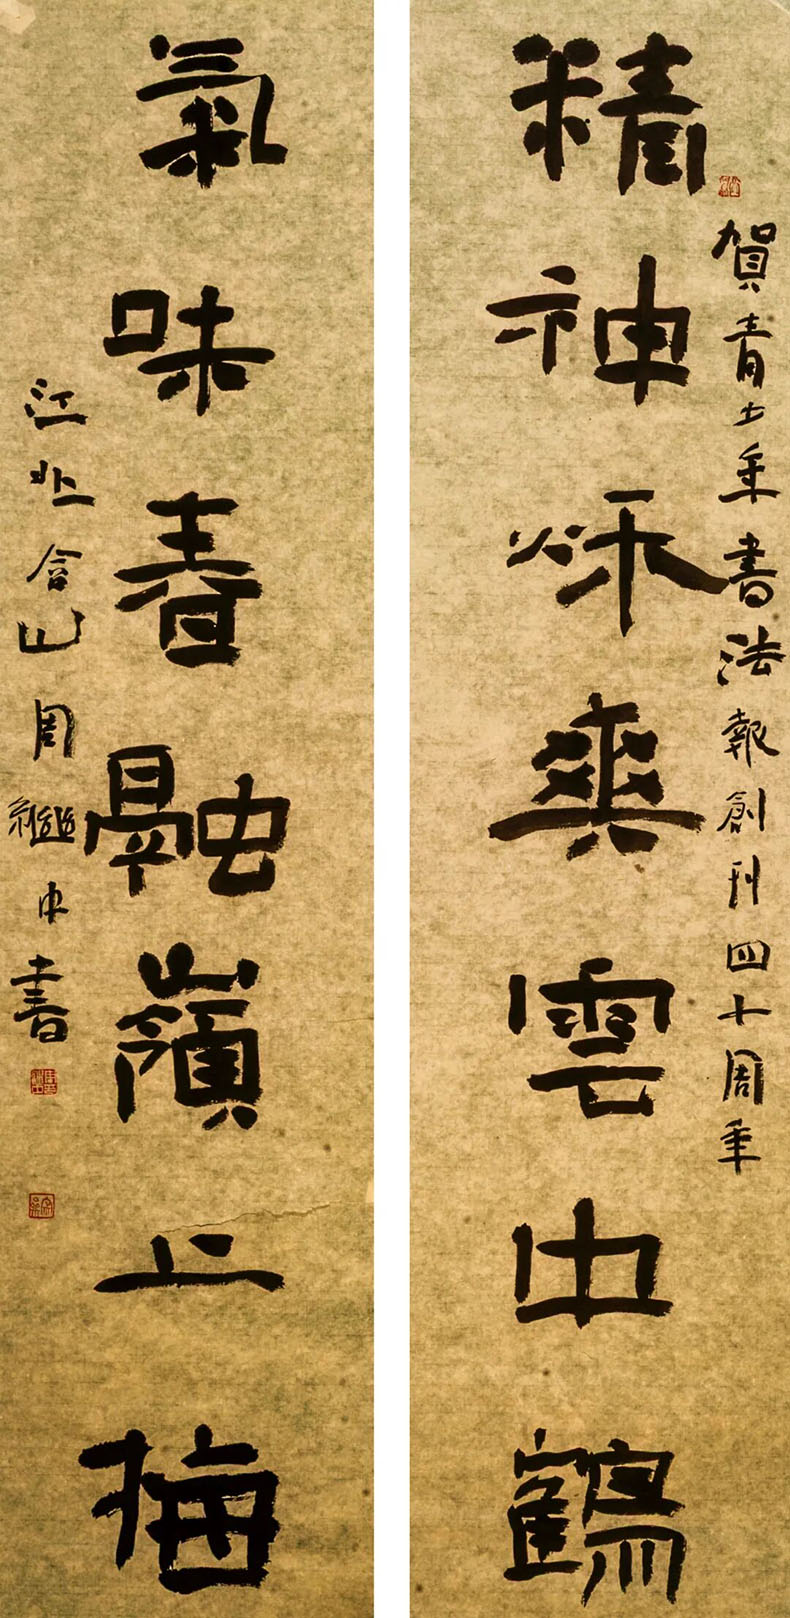 賀青少年書法報創刊四十周年
精神秋爽雲中鶴
氣味春融嶺上梅
江北含山周繼中書